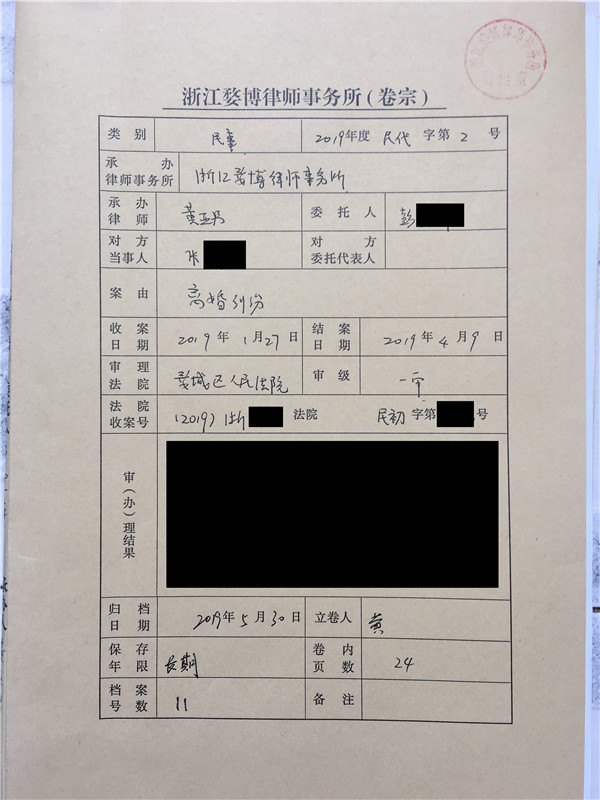 浙江婺博律师事务所(卷宗)
类别 民事 2019年度 民代 字第 2 号
承办律师事务所 浙江婺博律师事务所
承办律师 黄亚男 委托人 彭
对方当事人 张 对方委托代表人
案由 离婚纠纷
收案日期 2019年1月27日 结案日期 2019年4月9日
审理法院 婺城区人民法院 审级 一审
法院收案号 (2019)浙 法院 民初 字第 号
审(办)理结果
归档日期 2019年5月30日 立卷人 黄
保存年限 长期 卷内页数 24
档案号数 11 备注